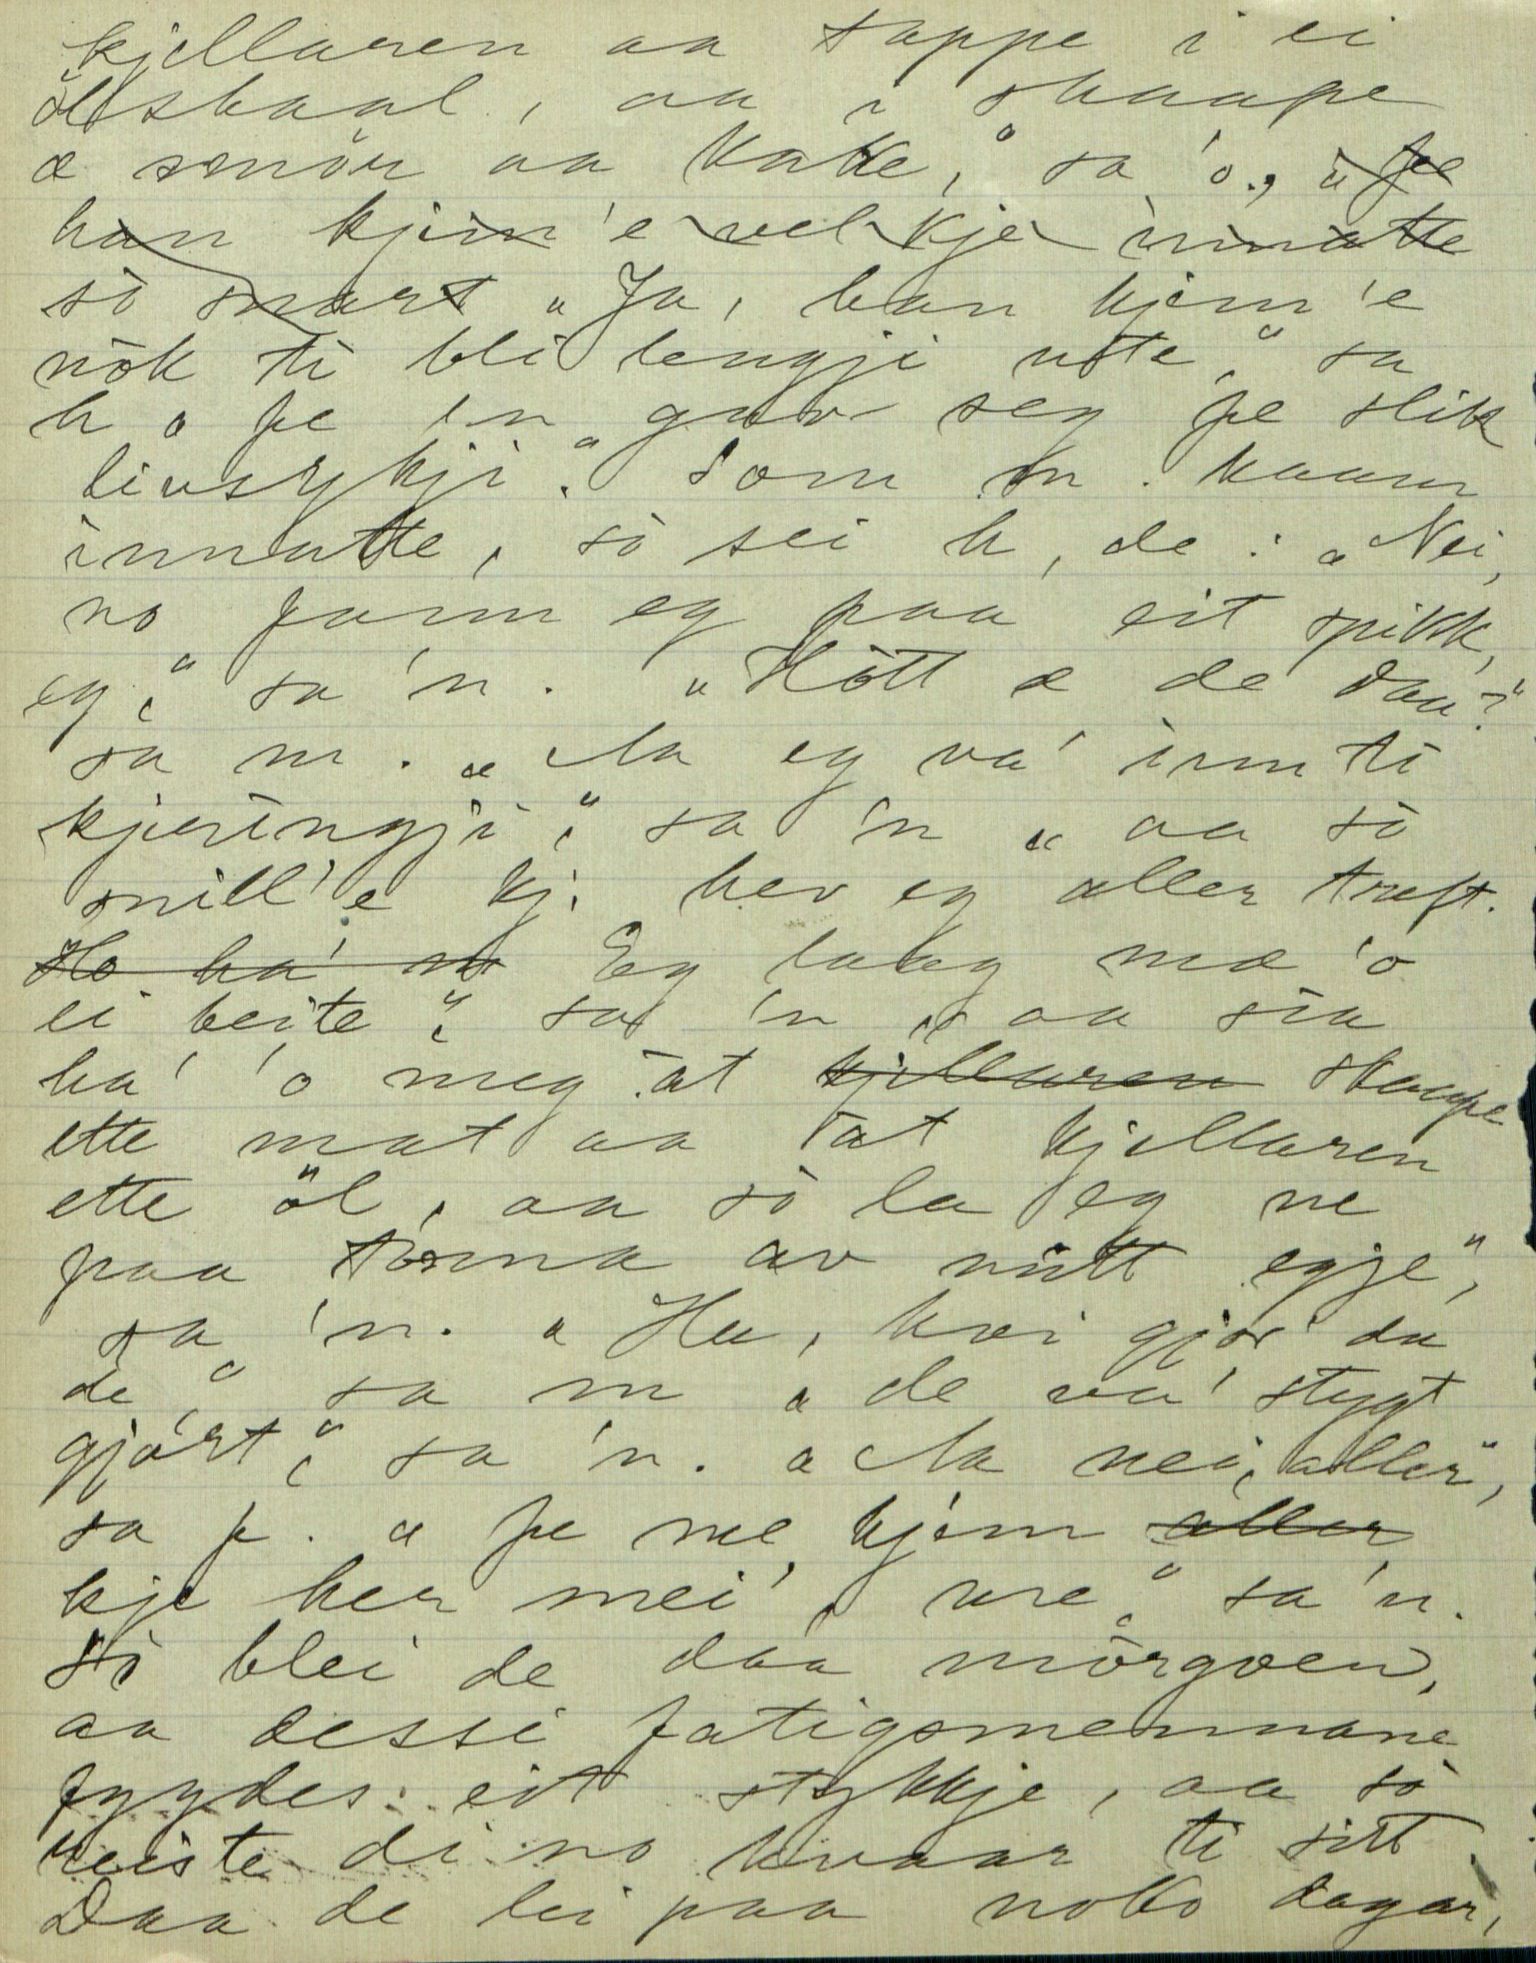 kjellaren aa tappe i ei
ölskaal, aa i skaape
æ smör aa kake," sa 'o., „fe
han kjem 'e vel kje innatte
so snart „Ja, han kjem 'e
nök ti bli lengji ute," sa
h „fe en gav seg fe slik
livsykji." Som m. kaam
innatte, so sei h, de: „Nei,
no fann eg paa eit spikk,
eg," sa 'n. „Hött æ de daa?"
sa m. „Aa eg va' inn ti
kjeringji," sa 'n „aa so
snill 'e kj. hev eg aller træft.
Ho ha' so Eg laag mæ 'o
ei beite," sa 'n „aa sia
ha' 'o meg åt kjellaren skaape
ette mat aa åt kjellaren
ette öl, aa so la eg ne
paa tonna av nütt egje",
sa 'n. „Hu, kvi gjor' du
de," sa m „de va' stygt
gjört," sa 'n. „Aa nei, aller",
sa f. „fe me kjem aller
kje her mei' ure," sa 'n.
So blei de daa mörgoen,
aa dessi fatigsmennane
fygdes eit stykkje, aa so
reiste di no kvaar ti sitt.
Daa de lei paa noko dagar,